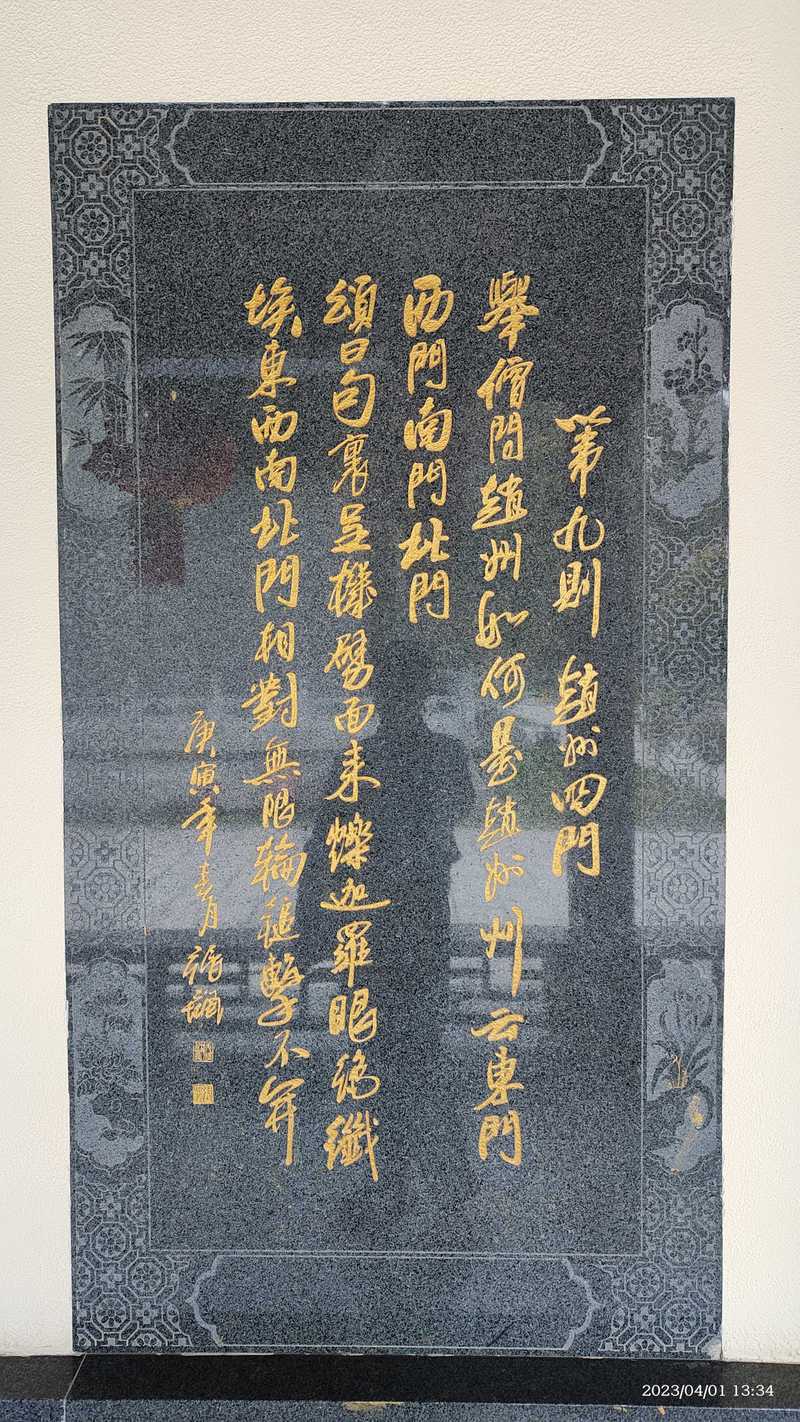 第九則 趙州四門
舉僧問趙州如何是趙州州云東門
西門南門北門
頌曰句裏呈機劈面來爍迦羅眼絕纖
埃東西南北門相對無限輪鎚擊不開
庚寅年 月 張
2023/04/01 13:34